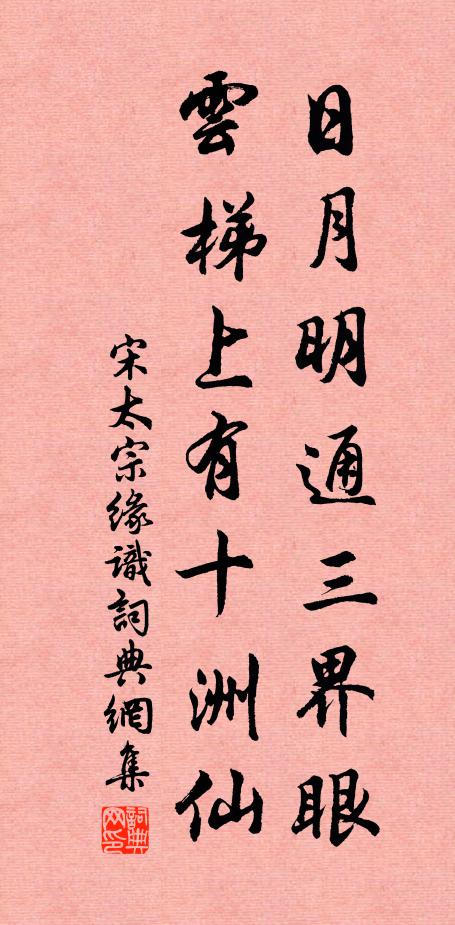 日月明通三界眼
雲梯上有十洲仙
宋太宗緣識詞典網集
詞典网印